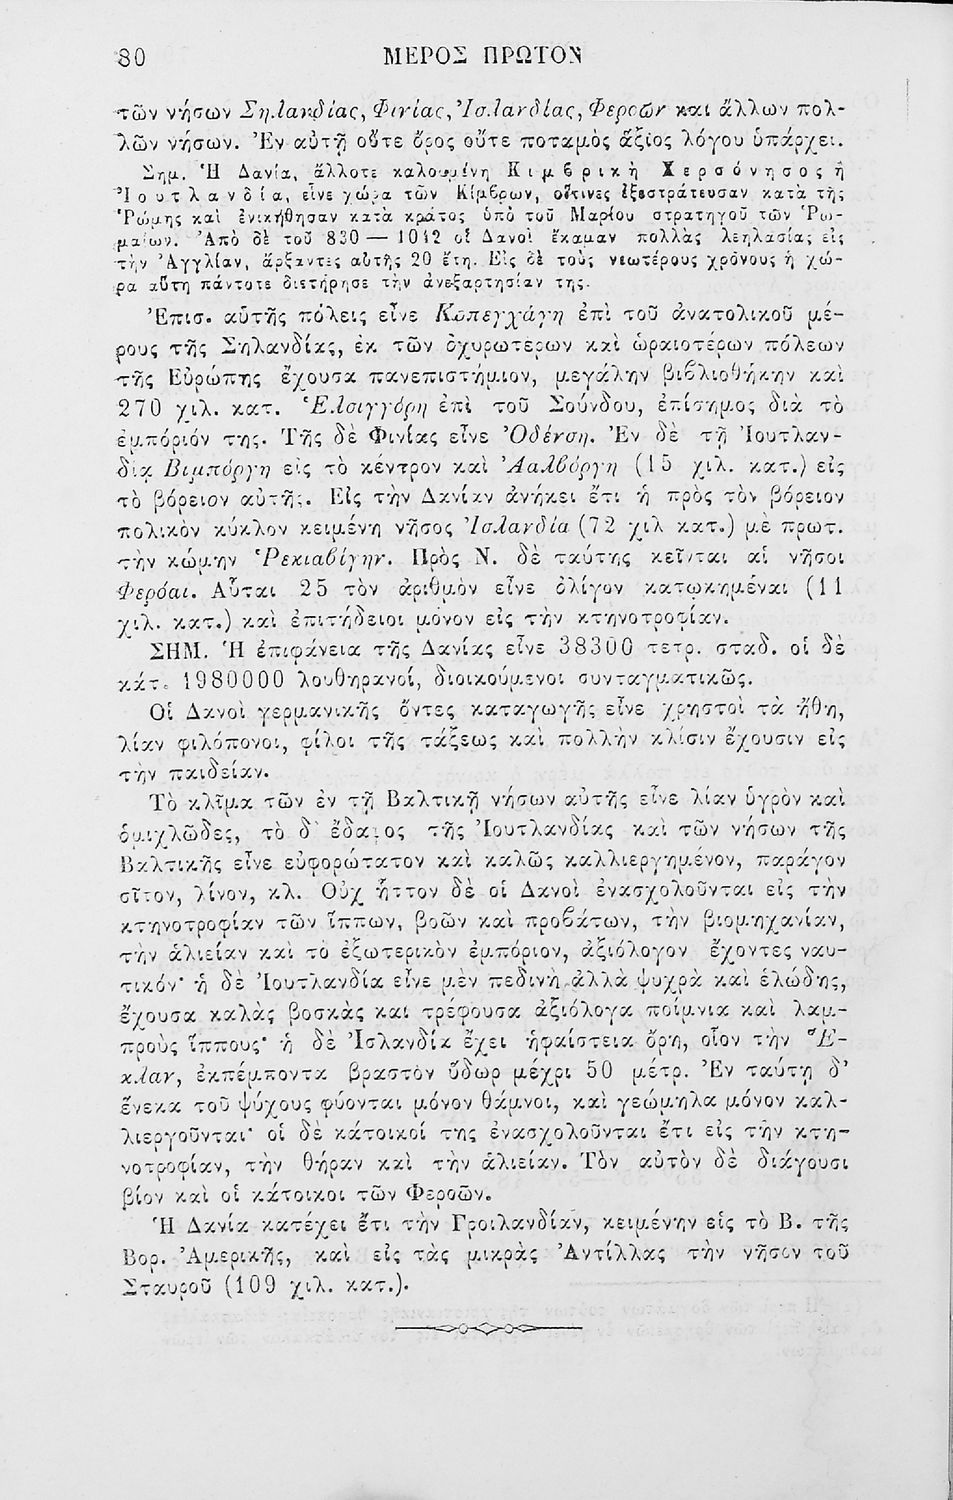 80 ΜΕΡΟΣ ΠΡΩΤΟΝ
τῶν νήσων Σηλανδίας, Φινίας, Ἰσλανδίας, Φεροῶν καὶ ἄλλων πολ-
λῶν νήσων. Ἐν αὐτῇ οὔτε ὄρος οὔτε ποταμὸς ἄξιος λόγου ὑπάρχει.
Σημ. Ἡ Δανία, ἄλλοτε καλουμένη Κιμβρικὴ Χερσόνησος ἢ
Ἰουτλανδία, εἶνε χώρα τῶν Κίμβρων, οἵτινες ἐξεστράτευσαν κατὰ τῆς
Ῥώμης καὶ ἐνικήθησαν κατὰ κράτος ὑπὸ τοῦ Μαρίου στρατηγοῦ τῶν Ῥω-
μαίων. Ἀπὸ δὲ τοῦ 830 — 1042 οἱ Δανοὶ ἔκαμαν πολλὰς λεηλασίας εἰς
τὴν Ἀγγλίαν, ἄρξαντες αὐτῆς 20 ἔτη. Εἰς δὲ τοὺς νεωτέρους χρόνους ἡ χώ-
ρα αὕτη πάντοτε διετήρησε τὴν ἀνεξαρτησίαν της.
Ἐπισ. αὐτῆς πόλεις εἶνε Κωπεγχάγη ἐπὶ τοῦ ἀνατολικοῦ μέ-
ρους τῆς Σηλανδίας, ἐκ τῶν ὀχυρωτέρων καὶ ὡραιοτέρων πόλεων
τῆς Εὐρώπης ἔχουσα πανεπιστήμιον, μεγάλην βιβλιοθήκην καὶ
270 χιλ. κατ. Ἑλσιγγόρη ἐπὶ τοῦ Σούνδου, ἐπίσημος διὰ τὸ
ἐμπόριόν της. Τῆς δὲ Φινίας εἶνε Ὀδένση. Ἐν δὲ τῇ Ἰουτλαν-
δίᾳ Βιμπόργη εἰς τὸ κέντρον καὶ Ἀαλβόργη (15 χιλ. κατ.) εἰς
τὸ βόρειον αὐτῆς. Εἰς τὴν Δανίαν ἀνήκει ἔτι ἡ πρὸς τὸν βόρειον
πολικὸν κύκλον κειμένη νῆσος Ἰσλανδία (72 χιλ κατ.) μὲ πρωτ.
τὴν κώμην Ῥεκιαβίγην. Πρὸς Ν. δὲ ταύτης κεῖνται αἱ νῆσοι
Φερόαι. Αὗται 25 τὸν ἀριθμὸν εἶνε ὀλίγον κατῳκημέναι (11
χιλ. κατ.) καὶ ἐπιτήδειοι μόνον εἰς τὴν κτηνοτροφίαν.
ΣΗΜ. Ἡ ἐπιφάνεια τῆς Δανίας εἶνε 38300 τετρ. σταδ. οἱ δὲ
κάτ. 1980000 λουθηρανοί, διοικούμενοι συνταγματικῶς.
Οἱ Δανοὶ γερμανικῆς ὄντες καταγωγῆς εἶνε χρηστοὶ τὰ ἤθη,
λίαν φιλόπονοι, φίλοι τῆς τάξεως καὶ πολλὴν κλίσιν ἔχουσιν εἰς
τὴν παιδείαν.
Τὸ κλῖμα τῶν ἐν τῇ Βαλτικῇ νήσων αὐτῆς εἶνε λίαν ὑγρὸν καὶ
ὁμιχλῶδες, τὸ δ' ἔδαφος τῆς Ἰουτλανδίας καὶ τῶν νήσων τῆς
Βαλτικῆς εἶνε εὐφορώτατον καὶ καλῶς καλλιεργημένον, παράγον
σῖτον, λίνον, κλ. Οὐχ ἧττον δὲ οἱ Δανοὶ ἐνασχολοῦνται εἰς τὴν
κτηνοτροφίαν τῶν ἵππων, βοῶν καὶ προβάτων, τὴν βιομηχανίαν,
τὴν ἁλιείαν καὶ τὸ ἐξωτερικὸν ἐμπόριον, ἀξιόλογον ἔχοντες ναυ-
τικόν· ἡ δὲ Ἰουτλανδία εἶνε μὲν πεδινὴ ἀλλὰ ψυχρὰ καὶ ἑλώδης,
ἔχουσα καλὰς βοσκὰς καὶ τρέφουσα ἀξιόλογα ποίμνια καὶ λαμ-
προὺς ἵππους· ἡ δὲ Ἰσλανδία ἔχει ἡφαίστεια ὄρη, οἷον τὴν Ἕ-
κλαν, ἐκπέμποντα βραστὸν ὕδωρ μέχρι 50 μέτρ. Ἐν ταύτῃ δ'
ἕνεκα τοῦ ψύχους φύονται μόνον θάμνοι, καὶ γεώμηλα μόνον καλ-
λιεργοῦνται· οἱ δὲ κάτοικοί της ἐνασχολοῦνται ἔτι εἰς τὴν κτη-
νοτροφίαν, τὴν θήραν καὶ τὴν ἁλιείαν. Τὸν αὐτὸν δὲ διάγουσι
βίον καὶ οἱ κάτοικοι τῶν Φεροῶν.
Ἡ Δανία κατέχει ἔτι τὴν Γροιλανδίαν, κειμένην εἰς τὸ Β. τῆς
Βορ. Ἀμερικῆς, καὶ εἰς τὰς μικρὰς Ἀντίλλας τὴν νῆσον τοῦ
Σταυροῦ (109 χιλ. κατ.).